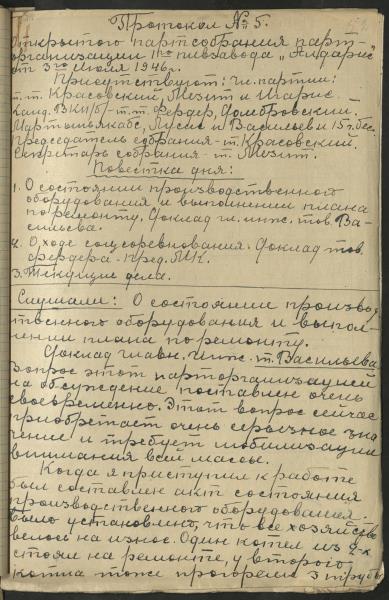 Протокол № 5.
Открытого партсобрания парт-
организации 1го пивзавода „Алдарис“
от 3го июля 1946 г.
Присутствуют: Чл. партии:
т.т. Красовский, Мезит и Шарис.
Канд. ВКП/б/ - т.т. Фердер, Домбровский.
Мартыньякабс, Лусис и Васильев и 15 ч. бес.
Председатель собрания - т. Красовский.
Секритарь собрания - т. Мезит.
Повестка дня:
1. О состоянии производственного
оборудования и выполнении плана
по ремонту. Доклад гл. инж. тов. Ва-
сильева.
2. О ходе соцсоревнования. Доклад тов.
Фердера - пред. МК.
3. Текущие дела.
Слушали: О состоянии производ-
ственного оборудования и выпол-
нении плана по ремонту.
Доклад главн. инж. т. Васильева
Вопрос этот парторганизацией
на обсуждение поставлен очень
своевременно. Этот вопрос сейчас
приобретает очень серьозное зна
чение и требует мобилизации
внимания всей массы.
Когда я приступил к работе
был составлен акт состояния
производственного оборудования.
Было установлено, что все хозяйство
велось на износ. Один котел из 2-х
стоял на ремонте, у второго
котла тоже прогорели 3 трубы